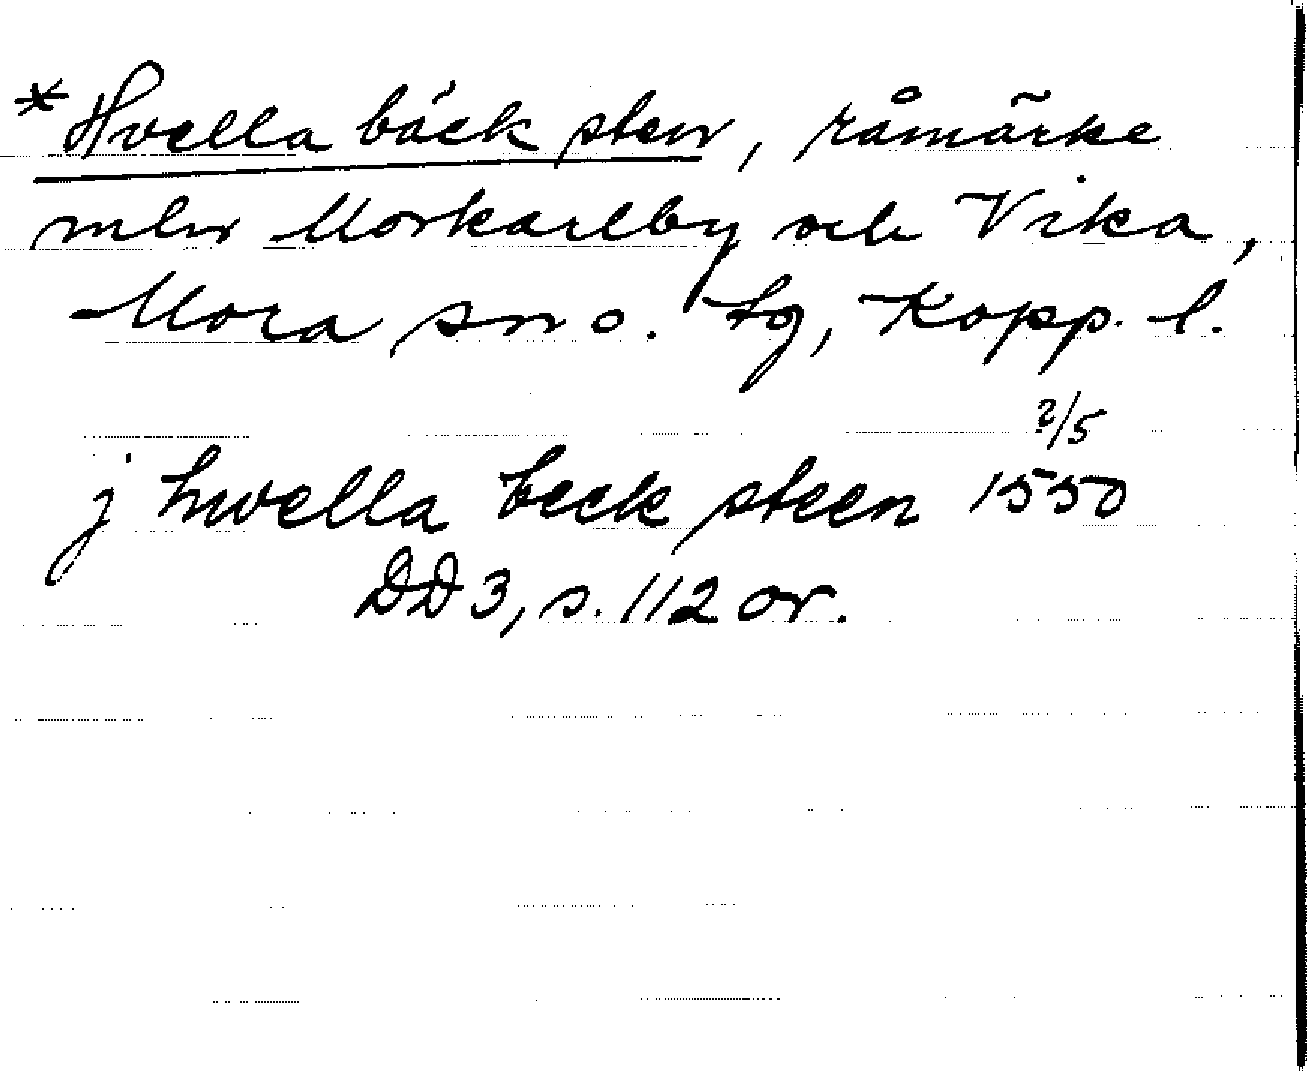 *Hvella bäck sten, råmärke
mln Morkarlby och Vika,
Mora sn o. tg, Kopp. l.
2/5
j hwella beck steen 1550
DD 3, s. 112 or.